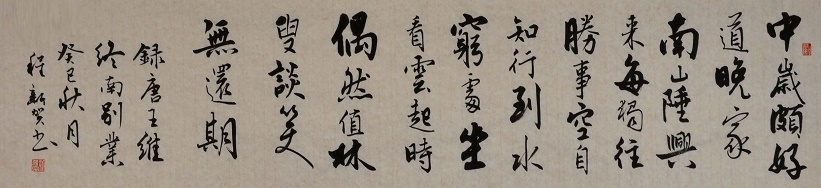 中歲頗好
道晚家
南山陲興
来每獨往
勝事空自
知行到水
窮處坐
看雲起時
偶然值林
叟談笑
無還期
録唐王維
終南別業
癸巳秋月
程新书